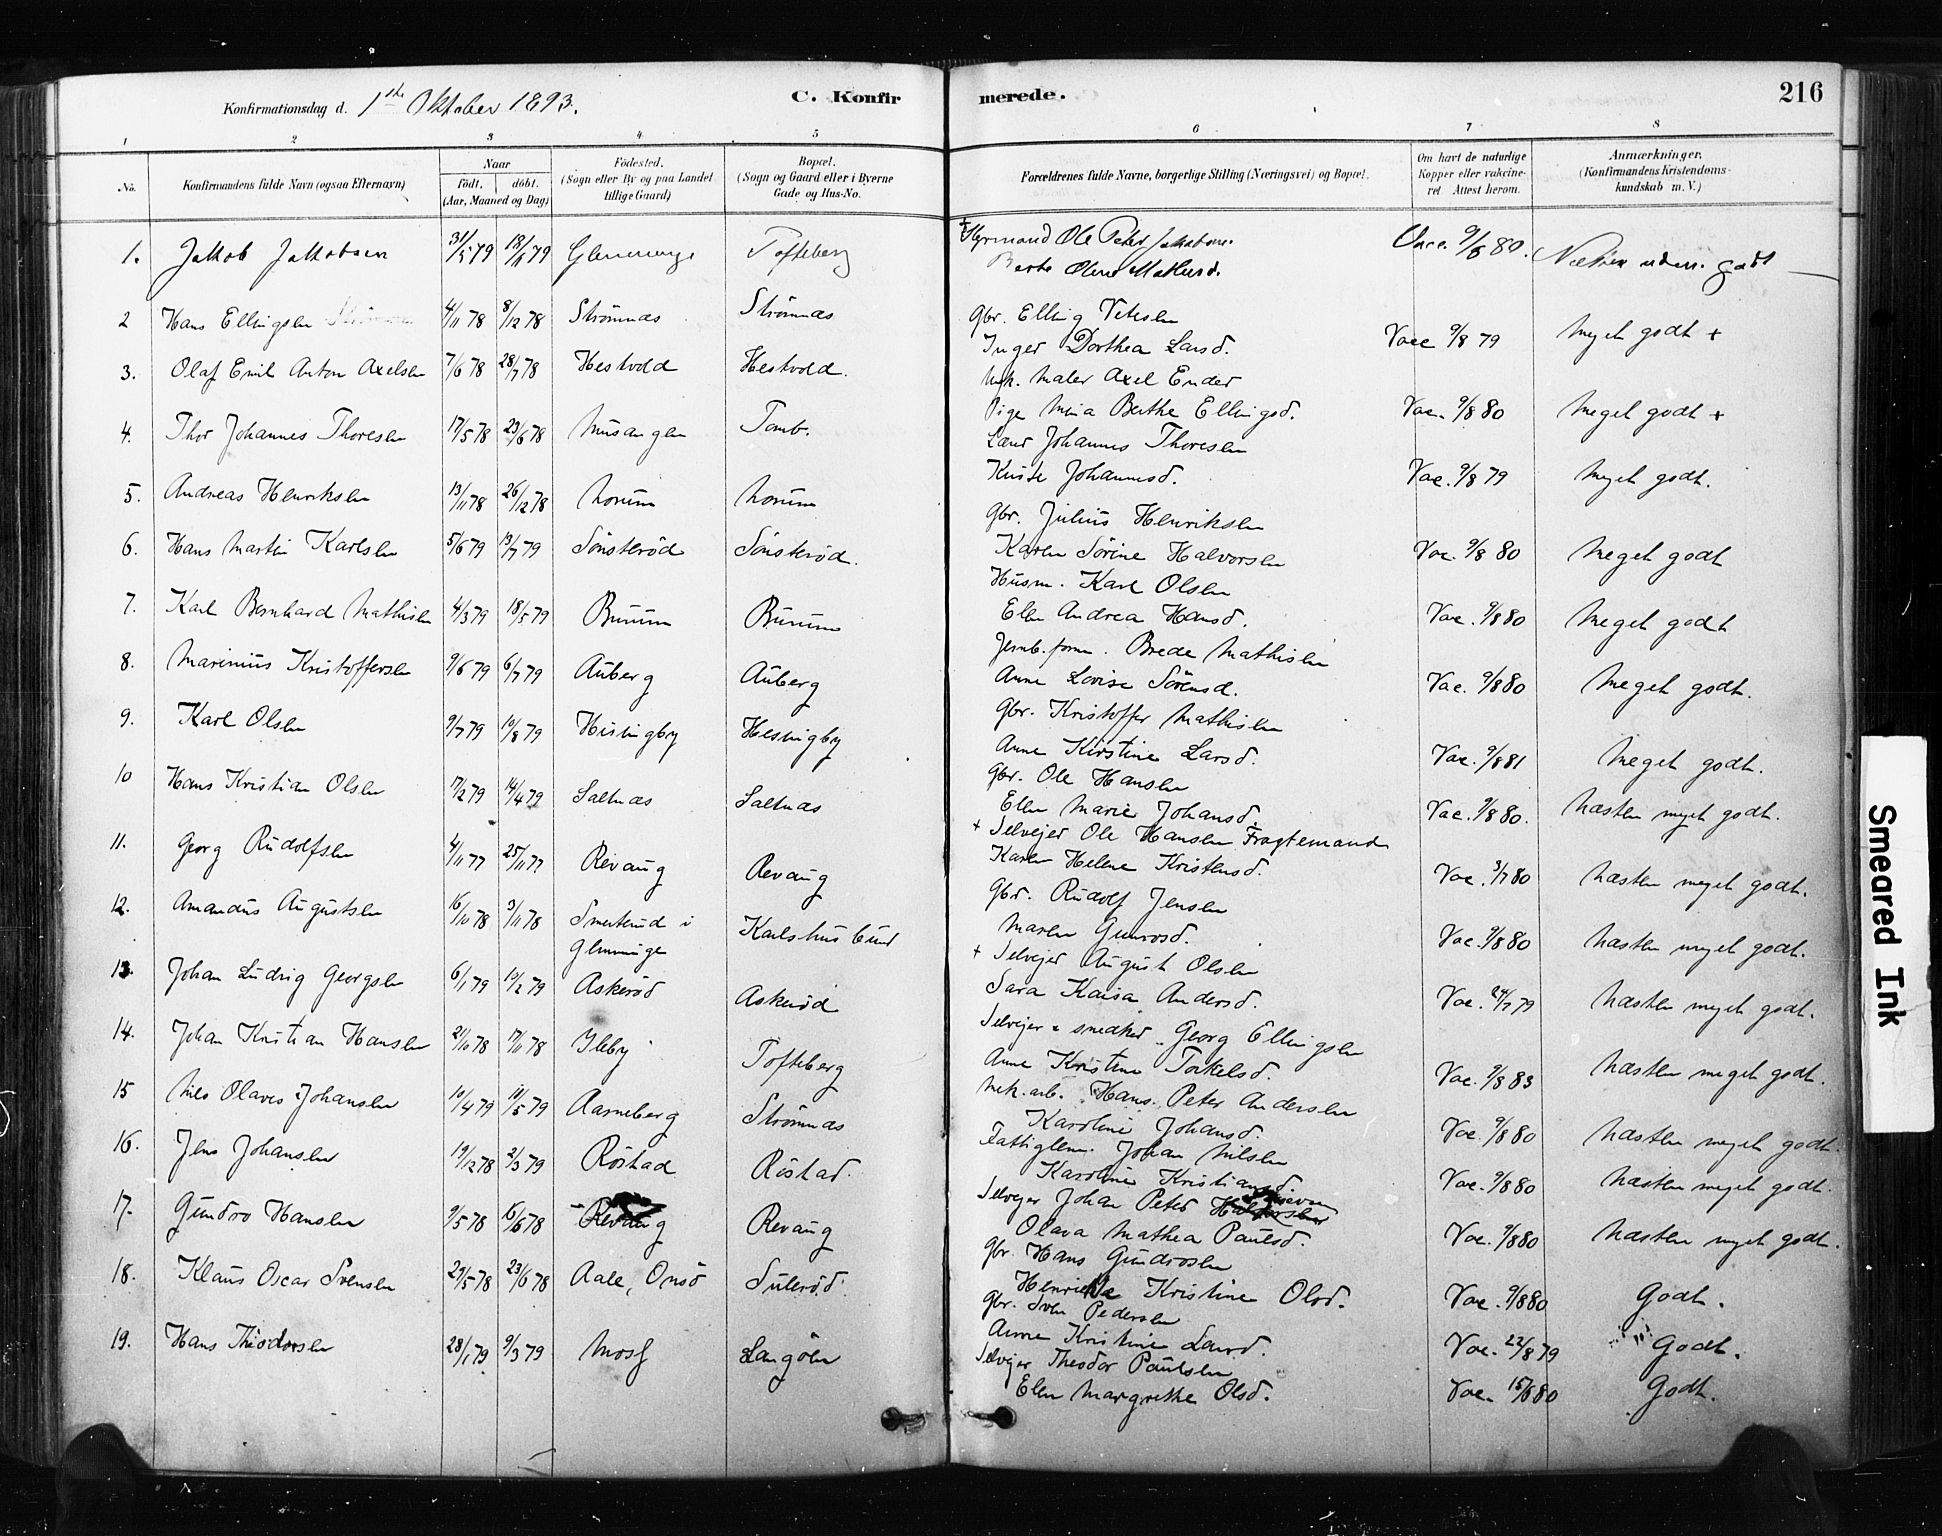 Konfirmationsdag d. 1ste Oktober 1893.
C. Konfirmerede.
216
1 2 3 4 5 6 7 8
No.
Konfirmandens fulde Navn (ogsaa Efternavn)
Naar
födt, döbt.
(Aar, Maaned og Dag)
Födested.
(Sogn eller By og paa Landet
tillige Gaard)
Bopæl.
(Sogn og Gaard eller i Byerne
Gade og Hus-No.
Forældrenes fulde Navne, borgerlige Stilling (Næringsvei) og Bopæl.
Om havt de naturlige
Kopper eller vakcine-
ret Attest herom.
Anmærkninger.
(Konfirmandens Kristendoms-
kundskab m. V.)
1. Jakob Jakobsen 31/5 79 Glemminge Tofteberg
+ Ole Peter Jakobsen
Vacc. 9/8 80. godt
2 Hans Ellingsen 4/11 78 8/12 78 Strömnæs Strömnæs
Gbr. Elling
Inger Dorthea Larsd.
Vacc 9/8 79 Meget godt +
3. Olaf Emil Anton Axelsen 7/6 78 28/7 78 Hestvold Hestvold.
Uk. Maler Axel Ender
Pige Mina Berthe Ellingsd.
Vac. 9/8 80 Meget godt +
4. Thor Johannes Thoresen 17/5 78 23/6 78 Husangen Tomb.
Johannes Thoresen
Johannesd.
Vac. 9/8 79 Meget godt.
5. Andreas Henriksen 13/11 78 26/12 78 Norum Norum
Gbr. Julius Henriksen
Karen Sörine Halvorsen
Vac. 9/8 80 Meget godt
6. Hans Martin Karlsen 5/6 79 13/7 79 Sönsteröd Sönsteröd.
Husm. Karl Olsen
Elen Andrea Hansd.
Vac. 9/8 80 Meget godt
7. Karl Bernhard Mathisen 4/3 79 18/5 79 Burum Burum
Jernb.form. Brede Mathisen
Anne Lovise Sörensd.
Vac. 9/8 80 Meget godt.
8. Marinius Kristoffersen 9/6 79 6/7 79 Auberg Auberg
Gbr. Kristoffer Mathisen
Anne Kirstine Larsd.
Vac. 9/8 81 Meget godt.
9. Karl Olsen 9/7 79 10/8 79 Husingby Hesingby
Gbr. Ole Hansen
Elen Marie Johansd.
Vac. 9/8 80. Næsten meget godt.
10 Hans Kristian Olsen 17/2 79 14/4 79 Saltnæs Saltnæs
+ Selvejer Ole Hansen Fragtemand
Karen Helene Kristensd.
Vac. 3/7 80 Næsten meget godt.
11. Georg Rudolfsen 4/11 77 25/11 77 Revaug Revaug
Gbr. Rudolf Jensen
Maren Gunrosd.
Vac. 9/8 80 Næsten meget godt.
12. Amandus Augustsen 16/10 78 3/11 78 Smertrud i
Glemminge
Karlshusbund
+ Selvejer August Olsen
Sara Kaisa Andersd.
Vac. 24/7 79 Næsten meget godt.
13. Johan Ludvig Georgsen 6/1 79 10/2 79 Askeröd Askeröd
Selvejer & snedker Georg Ellingsen
Anne Kristine Torkelsd.
Vac. 9/8 83 Næsten meget godt.
14. Johan Kristian Hansen 21/10 78 17/11 78 Ileby Tofteberg
Mek. arb. Hans Peter Andersen
Karoline Johansd.
Vac. 9/8 80 Næsten meget godt.
15 Nils Olaves Johansen 10/4 79 10/5 79 Aarneberg Strömnæs
Fattiglem. Johan Nilsen
Karoline Kristiansd.
Vac. 9/8 80 Næsten meget godt.
16. Jens Johansen 19/12 78 2/3 79 Röstad Röstad.
Selvejer Johan Peter
Olava Mathea Paulsd.
Vac. 9/8 80 Næsten meget godt.
17. Gundro Hansen 9/5 78 16/6 78 Revaug Revaug
Gbr. Hans Gundrosen
Henriette Kristine Olsd.
Vac. 9/8 80 Godt.
18. Klaus Oscar Svensen 29/5 78 23/6 78 Aale, Onsö Suleröd.
Gbr. Sven Pedersen
Anne Kristine Larsd.
Vac. 22/8 79 Godt.
19. Hans Theodorsen 28/1 79 9/3 79 Moss Langöen
Selvejer Theodor Paulsen
Elen Margrethe Olsd.
Vac. 15/8 80 Godt.
Smeared Ink